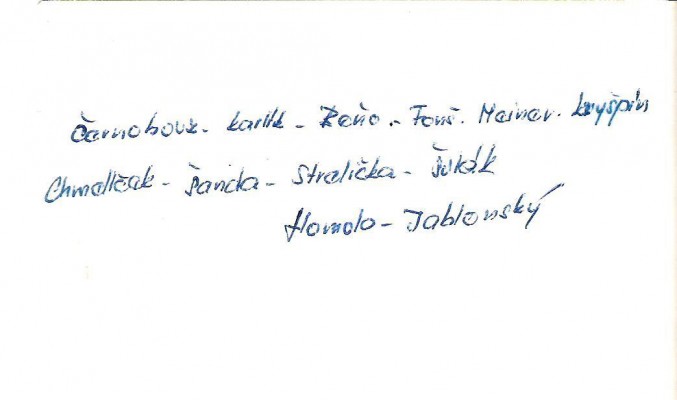 Černohouz - Karlík - - Fouš. Mainer. Kryšpín
Chmelčak - Šanda - Strelička - Šulák
Homola - Jablonský